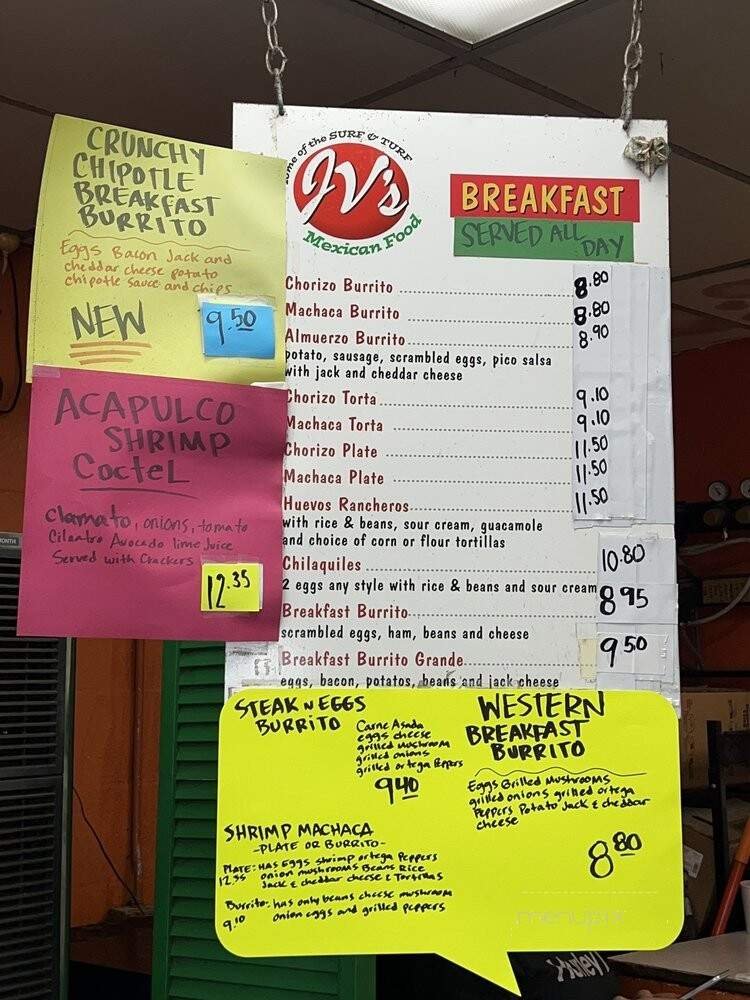 CRUNCHY
CHIPOTLE
BREAKFAST
BURRITO
Eggs Bacon Jack and
cheddar cheese potato
chipotle sauce and chips
NEW
9.50
ACAPULCO
SHRIMP
Coctel
clamato, onions, tomato
Cilantro Avocado lime Juice
Served with Crackers
12.35
of the SURF & TURF
JV's
Mexican Food
BREAKFAST
SERVED ALL
DAY
Chorizo Burrito 8.80
Machaca Burrito 8.80
Almuerzo Burrito 8.90
potato, sausage, scrambled eggs, pico salsa
with jack and cheddar cheese
Chorizo Torta 9.10
Machaca Torta 9.10
Chorizo Plate 11.50
Machaca Plate 11.50
Huevos Rancheros 11.50
with rice & beans, sour cream, guacamole
and choice of corn or flour tortillas
Chilaquiles 10.80
2 eggs any style with rice & beans and sour cream
Breakfast Burrito 8.95
scrambled eggs, ham, beans and cheese
Breakfast Burrito Grande 9.50
eggs, bacon, potatos, beans and jack cheese
STEAK N EGGS
BURRITO
Carne Asada
eggs cheese
grilled mushroom
grilled onions
grilled ortega Peppers
9.40
WESTERN
BREAKFAST
BURRITO
Eggs Grilled Mushrooms
grilled onions grilled ortega
Peppers Potato Jack & cheddar
cheese
8.80
SHRIMP MACHACA
-PLATE OR BURRITO-
PLATE: HAS Eggs shrimp ortega Peppers
12.35 onion mushrooms Beans Rice
Jack & cheddar cheese & Tortillas
Burrito: has only beans cheese mushroom
9.10 onion eggs and grilled peppers
menupix
Hurley